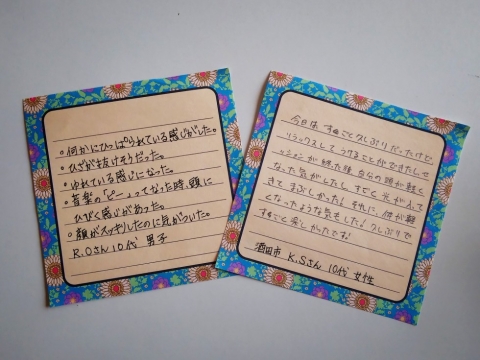 。何かにひっぱられている感じがした。
。ひざが抜けそうだった。
。ゆれている感じになった。
。音楽のピーーってなった時、頭に
ひびく感じがあった。
。顔がスッキリしたのに気がついた。
R.Oさん 10代 男子
今日は すっごく久しぶりだったけど
リラックスして うけることができたしセ
ッションが終った後、自分の頭が軽く
なった気がしたし すごく光が入って
きて まぶしかった! それに、体が軽
くなったような気もした! 久しぶりで
すっごく楽しかったです。
酒田市 K.Sさん 10代 女性